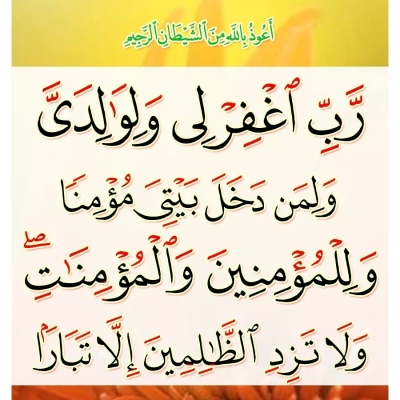 أَعُوذُ بِاللَّهِ مِنَ ٱلشَّيْطَانِ ٱلرَّجِيمِ
رَّبِّ ٱغْفِرْ لِى وَلِوَٰلِدَىَّ
وَلِمَن دَخَلَ بَيْتِىَ مُؤْمِنًا
وَلِلْمُؤْمِنِينَ وَٱلْمُؤْمِنَـٰتِۖ
وَلَا تَزِدِ ٱلظَّـٰلِمِينَ إِلَّا تَبَارًۢا